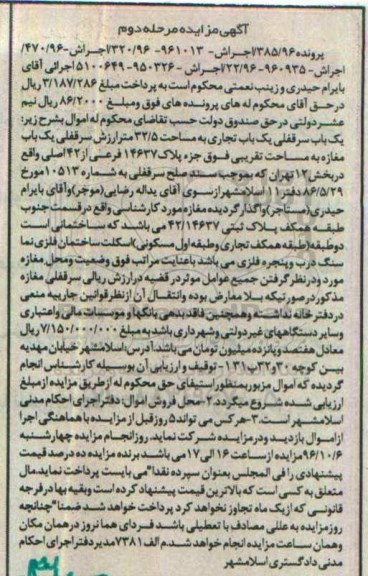 آگهی مزایده مرحله دوم
پرونده ۳۸۵/۹۶/اجراش - ۹۶۱۰۱۳-۳۲۰/۹۶/اجراش-۴۷۰/۹۶/
اجراش -۹۶۰۹۳۵-۲۲/۹۶/اجراش -۹۵۰۳۲۶-۵۱۰۰۶۴۹ اجرائی آقای
بایرام حیدری و زینب نعمتی محکوم است به پرداخت مبلغ ۳/۱۸۷/۲۸۶ ریال
در حق آقای محکوم له های پرونده های فوق ومبلغ ۸۶/۲۰۰۰ ریال نیم
عشر دولتی در حق صندوق دولت حسب تقاضای محکوم له اموال بشرح زیر:
یک باب سرقفلی یک باب تجاری به مساحت ۳۲/۵ متر ارزش سرقفلی یک باب
مغازه به مساحت تقریبی فوق جزء پلاک ۱۴۶۳۷ فرعی از ۴۲ اصلی واقع
در بخش ۱۲ تهران که بموجب سند صلح سرقفلی به شماره ۱۰۵۱۳ مورخ
۸۶/۵/۲۹ دفتر ۱۱ اسلامشهر از سوی آقای یداله رضایی(موجر) وآقای بایرام
حیدری(مستاجر) واگذار گردیده مغازه مورد کارشناسی واقع در قسمت جنوب
طبقه همکف پلاک ثبتی ۴۲/۱۴۶۳۷ می باشد که ساختمانی است
دو طبقه(طبقه همکف تجاری وطبقه اول مسکونی)اسکلت ساختمان فلزی نما
سنگ درب و پنجره فلزی می باشد باعنایت مراتب فوق وضعیت ومحل مغازه
مورد ودر نظر گرفتن جمیع عوامل موثر در قضیه در ارزش ریالی سرقفلی مغازه
مذکور در صورتیکه بلا معارض بوده وانتقال آن از نظر قوانین جاریه منعی
در دفتر خانه نداشته وهمچنین فاقد بدهی بانکها و موسسات مالی واعتباری
وسایر دستگاههای غیر دولتی وشهرداری باشد به مبلغ ۷/۱۵۰/۰۰۰/۰۰۰ ریال
معادل هفتصد وپانزده میلیون تومان می باشد.آدرس:اسلامشهر خیابان مهدیه
بین کوچه ۳۰ و ۳۲ پ ۱۳۱ - توقیف وارزیابی آن بوسیله کارشناس انجام
گردیده که اموال مزبور بمنظور استیفای حق محکوم له از طریق مزایده از مبلغ
ارزیابی شده شروع میگردد.۲-محل فروش اموال: دفتر اجرای احکام مدنی
اسلامشهر است.۳-هر کس می تواند ۵ روز قبل از مزایده با هماهنگی اجرا
از اموال بازدید ودر مزایده شرکت نماید. روز انجام مزایده چهارشنبه
۹۶/۱۰/۶ مزایده از ساعت ۱۶ الی ۱۷ می باشد برنده مزایده ده درصد قیمت
پیشنهادی را فی المجلس بعنوان سپرده نقدا"می بایست پرداخت نماید.مال
متعلق به کسی است که بالاترین قیمت پیشنهاد کرده است وبقیه بها در فرجه
قانونی که از یک ماه تجاوز نخواهد کرد پرداخت خواهد شد.ضمنا"چنانچه
روز مزایده به عللی مصادف با تعطیلی باشد فردای همان روز در همان مکان
وهمان ساعت مزایده انجام خواهد شد.م الف ۷۳۸۱ مدیر دفتر اجرای احکام
مدنی دادگستری اسلامشهر